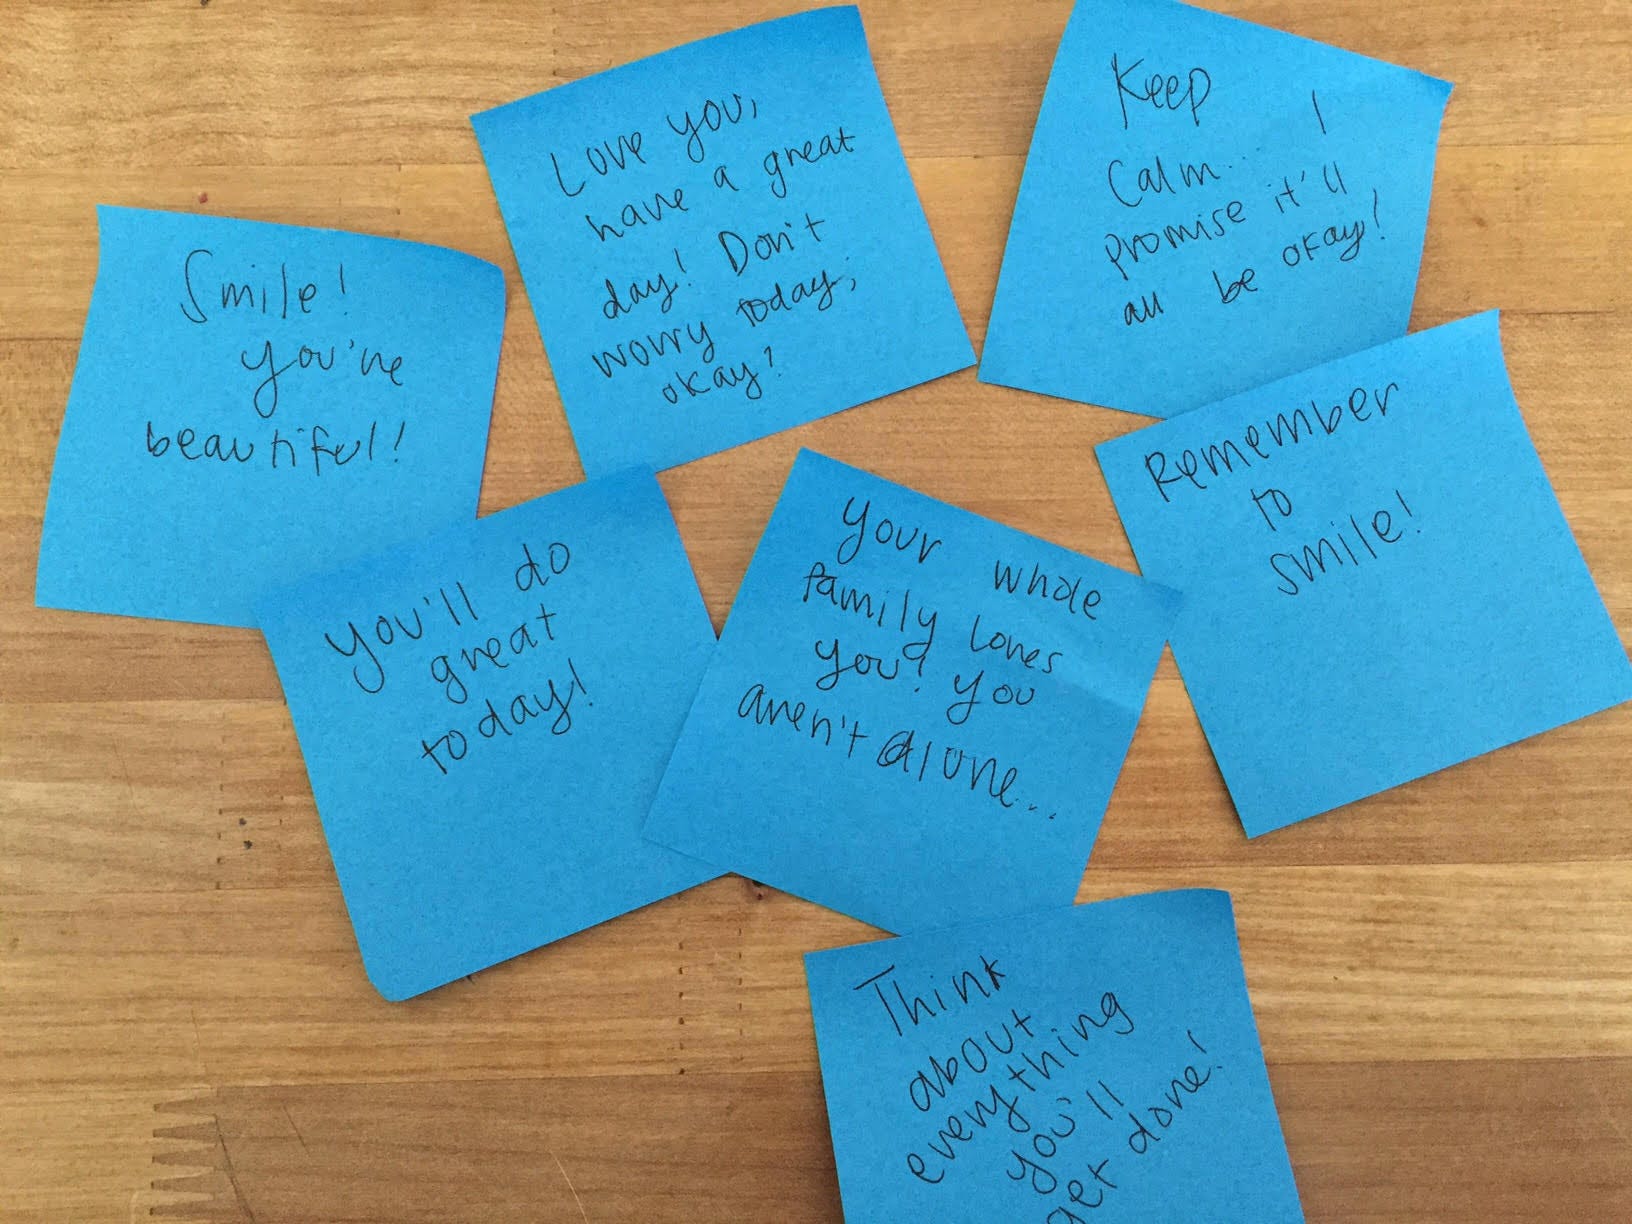 Smile!
you're
beautiful!
Love you,
have a great
day! Don't
worry today,
okay?
Keep
Calm.. I
promise it'll
all be okay!
Remember
to
smile!
You'll do
great
today!
Your whole
family loves
you! You
aren't alone...
Think
about
everything
you'll
get done!